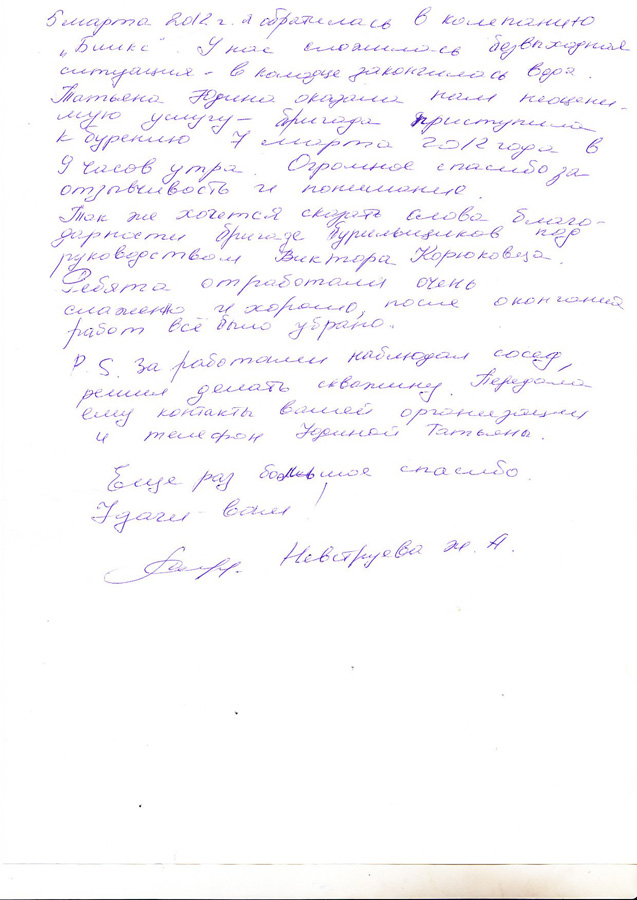 5 марта 2012 г. я обратилась в компанию
„Бликс". У нас сложилась безвыходная
ситуация - в колодце закончилась вода.
Татьяна Юдина оказала нам неоцени-
мую услугу - бригада приступила
к бурению 7 марта 2012 года в
9 часов утра. Огромное спасибо за
отзывчивость и понимание.
Так же хочется сказать слова благо-
дарности бригаде бурильщиков под
руководством Виктора Корюковца.
Ребята отработали очень
слаженно и хорошо, после окончания
работ всё было убрано.
P.S. За работами наблюдал сосед,
решил делать скважину. Передала
ему контакты вашей организации
и телефон Юдиной Татьяны.
Еще раз большое спасибо.
Удачи вам!
Невструева Ж. А.